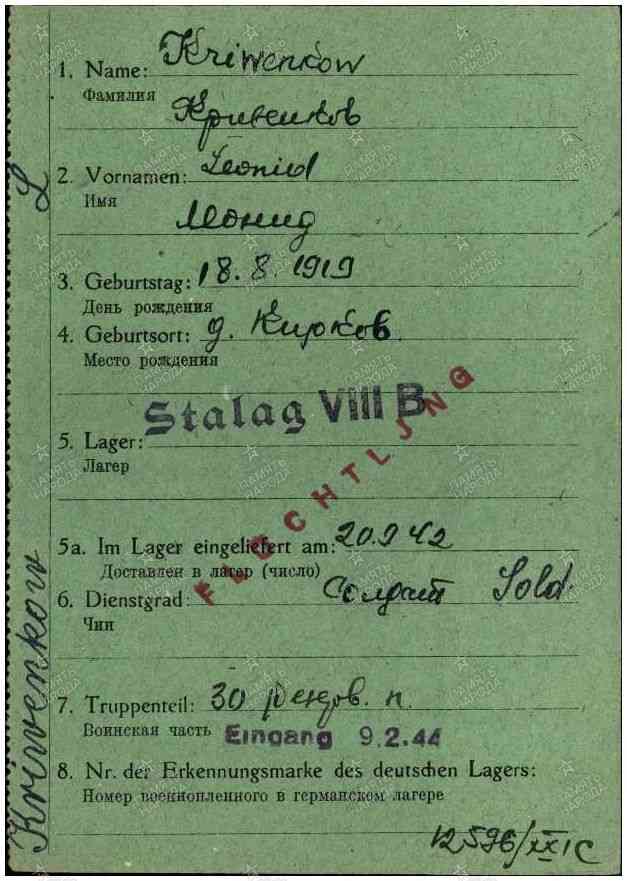 1. Name: Kriwenkow
Фамилия
Кривенков
2. Vornamen: Leonid
Имя
Леонид
3. Geburtstag: 18.8.1919
День рождения
4. Geburtsort: д. Кирков
Место рождения
Stalag VIII B
5. Lager:
Лагер
FLÜCHTLING
5a. Im Lager eingeliefert am: 20.9 42
Доставлен в лагер (число)
6. Dienstgrad: Солдат Sold.
Чин
7. Truppenteil: 30 п.
Воинская часть Eingang 9.2.44
8. Nr. der Erkennungsmarke des deutschen Lagers:
Номер военнопленного в германском лагере
12596/XXIC
Kriwenkow L
ПАМЯТЬ НАРОДА